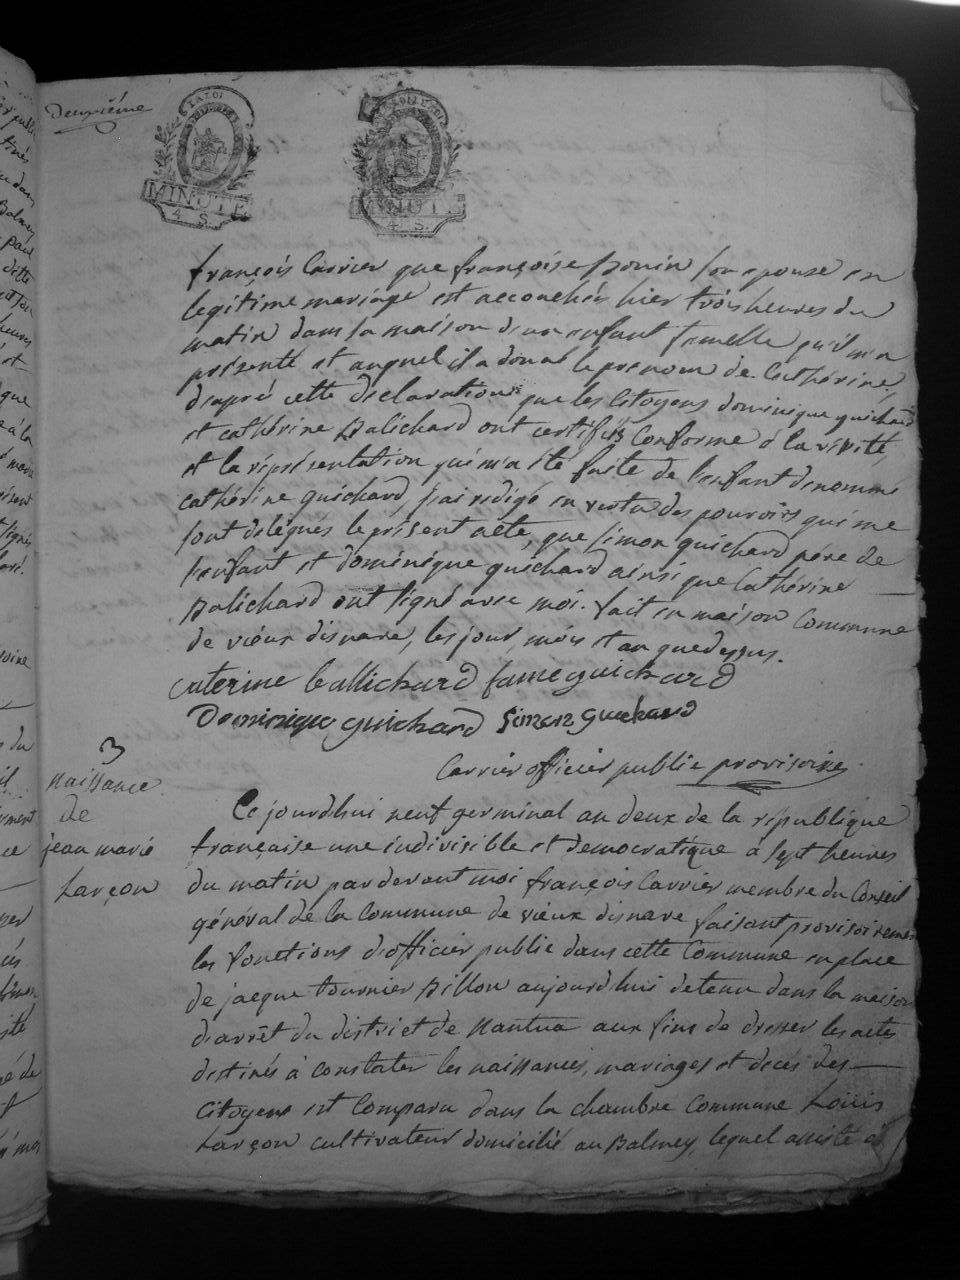 Deuxième
LA LOI
MINUTE
4 S.
MINUTE
4 S.
françois Carrier que françoise Ponin son epouse en
legitime mariage est accouchée hier trois heures du
matin dans sa maison d'un enfant femelle qu'il m'a
présenté et auquel il a donné le prenom de Cathérine,
d'apré cette déclaration que les Citoyens dominique guichard
et cathérine Balichard ont certifiés Conforme á la vérité,
et la réprésentation qui m'a été faite de l'enfant denommé
cathérine guichard, j'ai redigé en vertu des pouvoirs qui me
sont délégués le présent acte, que simon guichard pére de
l'enfant et dominique guichard ainsi que Cathérine
Balichard ont signé avec moi. fait en maison Commune
de vieux disnave, les jour, mois et an que dessus.
Caterine ballichard fame guichard
Dominique guichard Simon guichard
Carrier officier public provisoire
3
naissance
de
jean marié
Larçon
Ce jourd'hui neuf germinal an deux de la république
française une indivisible et democratique a sept heures
du matin par devant moi françois Carrier membre du Conseil
général de la Commune de vieux disnave faisant provisoirement
les fonctions d'officier public dans cette Commune en place
de jacque tournier Billon aujourd'hui detenu dans la maison
d'arrêt du district de Nantua aux fins de dresser les actes
destinés à constater les naissances, mariages et decés des
Citoyens est Comparu dans la chambre Commune Louis
Larçon cultivateur domicilié au Balmey, lequel assisté d